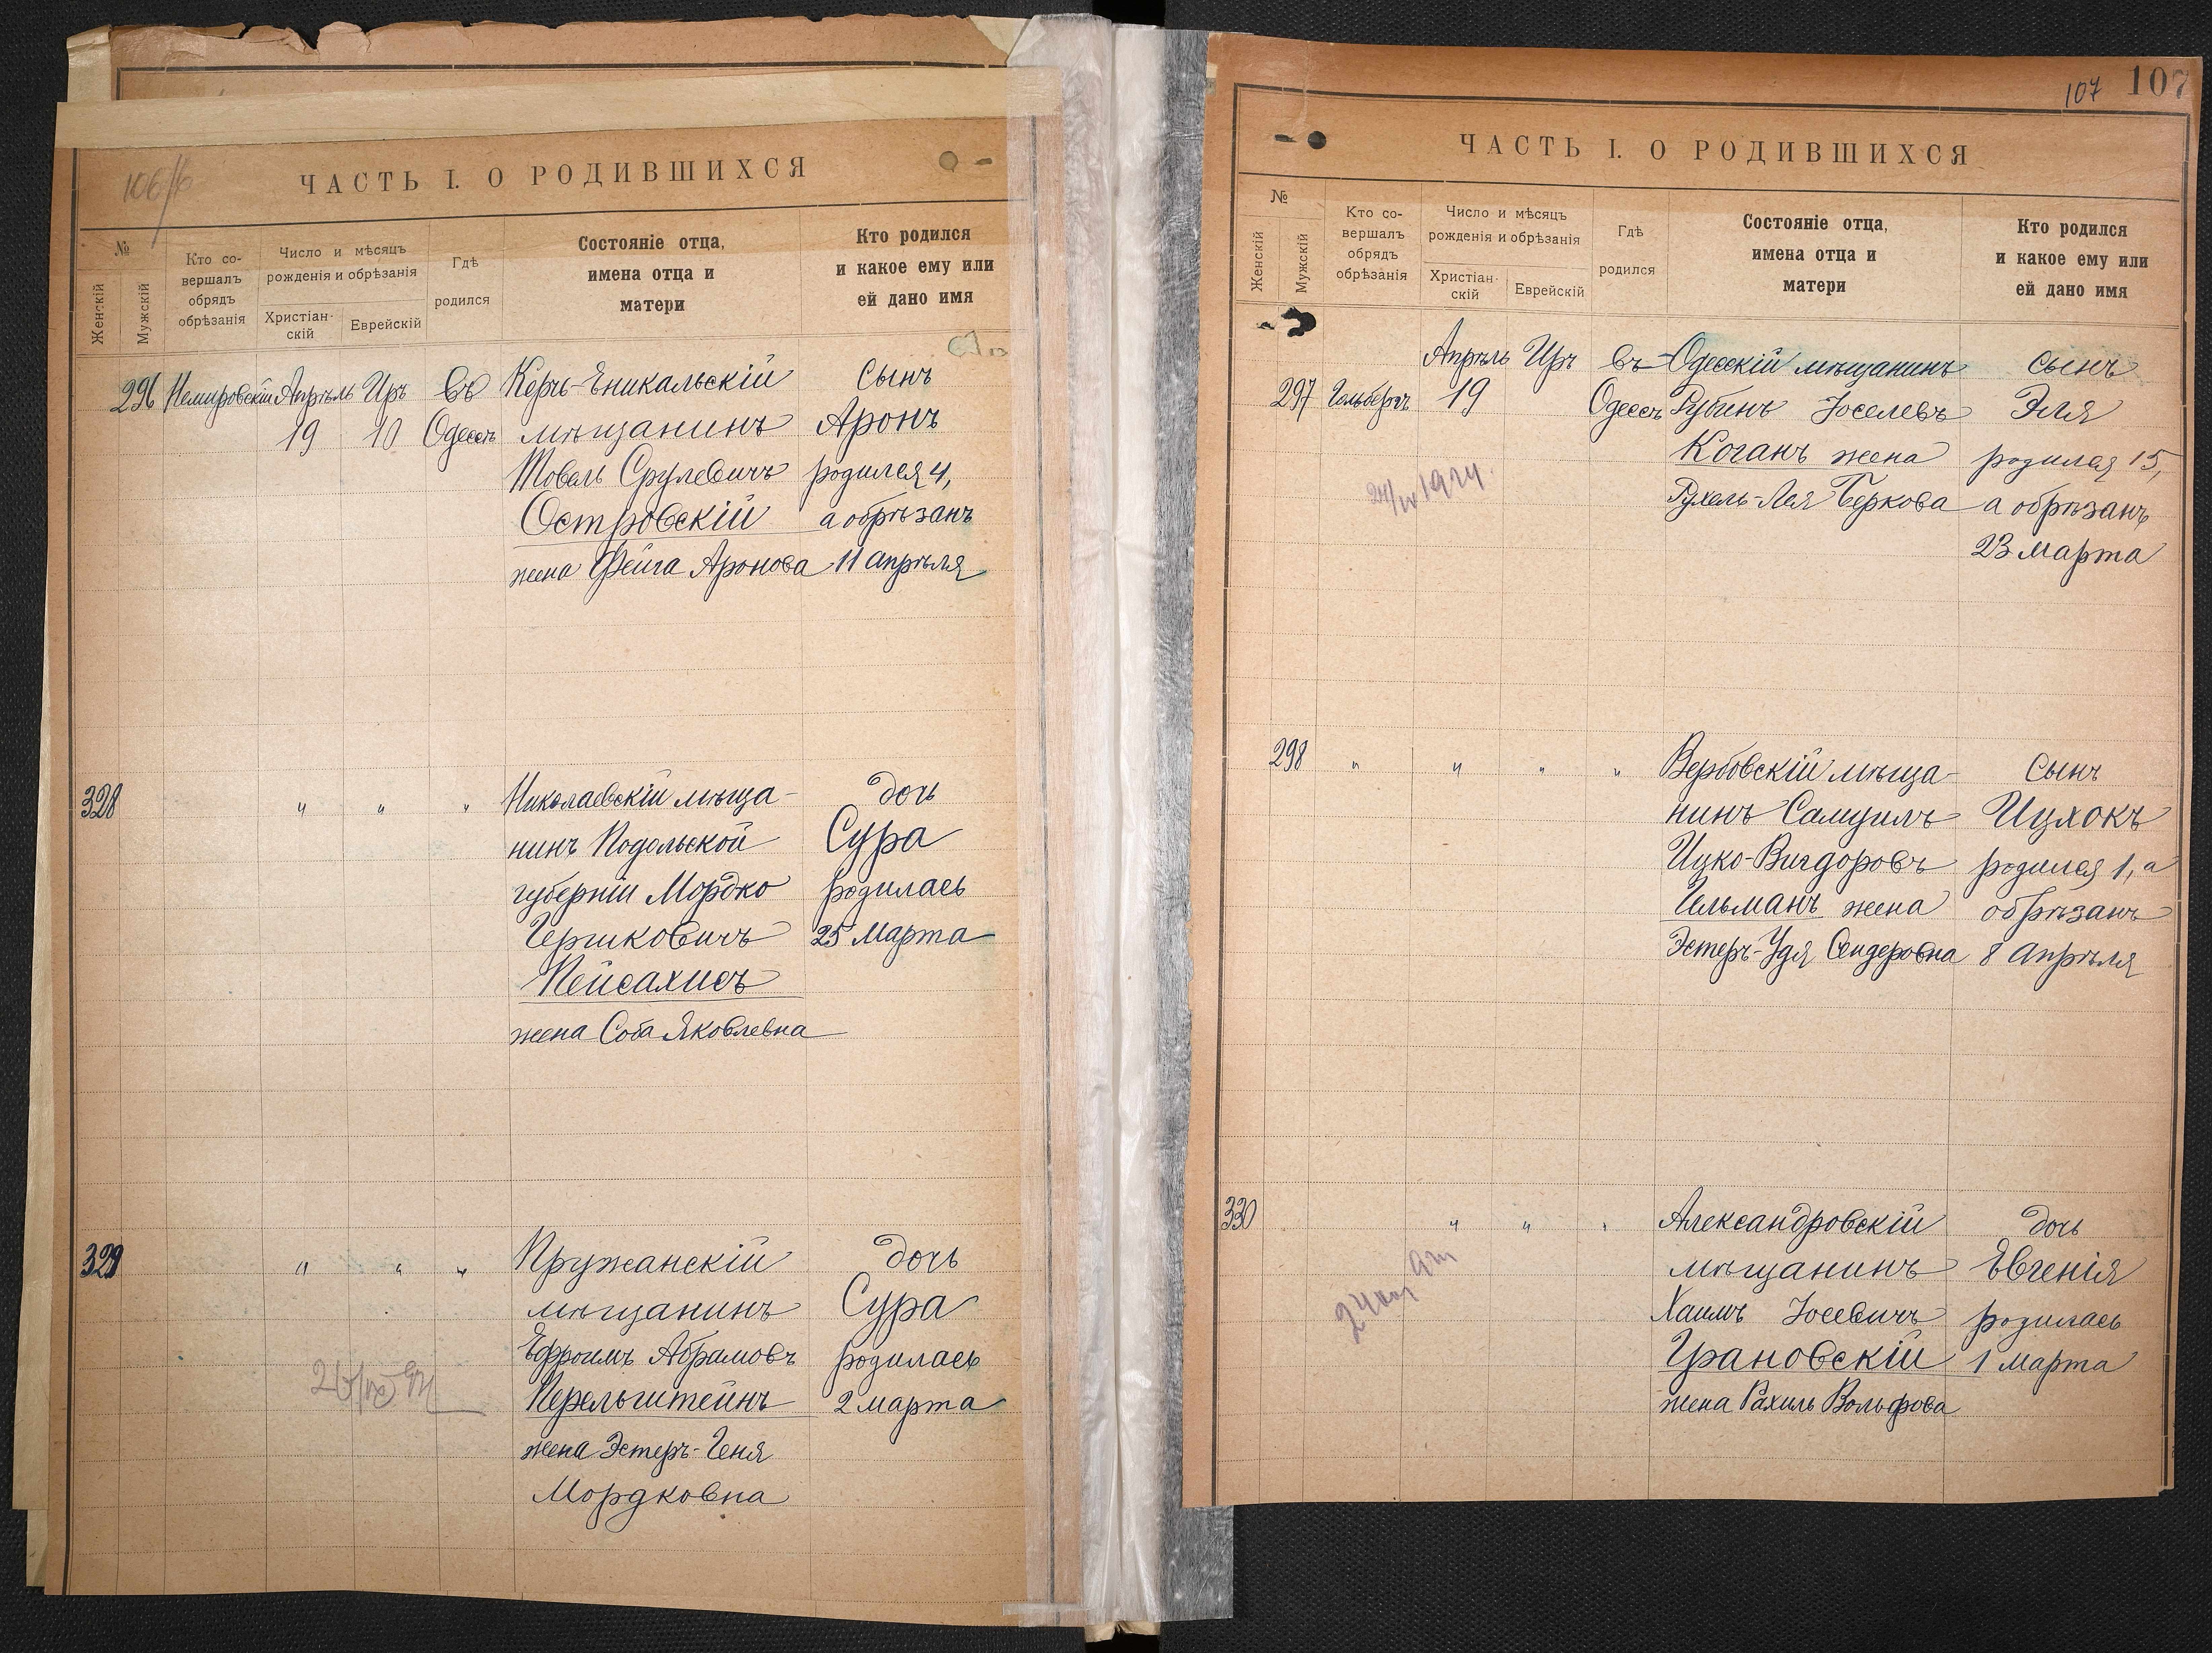 106/б
ЧАСТЬ I. О РОДИВШИХСЯ
№
Женскій
Мужскій
Кто со-
вершалъ
обрядъ
обрѣзанія
Число и мѣсяцъ
рожденія и обрѣзанія
Христіан-
скій
Еврейскій
Гдѣ
родился
Состояніе отца,
имена отца и
матери
Кто родился
и какое ему или
ей дано имя
296 Немировскій Апрѣль Иръ въ Керчь-Еникальскій сынъ
19 10 Одессѣ мѣщанинъ Аронъ
Товель Срулевичъ родился 4,
Островскій а обрѣзанъ
жена Фейга Аронова 11 апрѣля
328 " " " Николаевскій мѣща- дочь
нинъ Подольской Сура
губерніи Мордко родилась
Гершковичъ 25 марта
Пейсахисъ
жена Соба Яковлевна
329 " " " Пружанскій дочь
мѣщанинъ Сура
Ефроимъ Абрамовъ родилась
Перельштейнъ 2 марта
жена Эстеръ-Геня
Мордковна
107 107
ЧАСТЬ I. О РОДИВШИХСЯ
№
Женскій
Мужскій
Кто со-
вершалъ
обрядъ
обрѣзанія
Число и мѣсяцъ
рожденія и обрѣзанія
Христіан-
скій
Еврейскій
Гдѣ
родился
Состояніе отца,
имена отца и
матери
Кто родился
и какое ему или
ей дано имя
Апрѣль Иръ въ Одесскій мѣщанинъ сынъ
297 Гольбергъ 19 Одессѣ Рубинъ Іоселевъ Эля
Коганъ жена родился 15,
Рухель-Лея Беркова а обрѣзанъ
23 марта
298 " " " " Вербовскій мѣща- сынъ
нинъ Самуилъ Ицхокъ
Ицко-Вигдоровъ родился 1, а
Гельманъ жена обрѣзанъ
Эстеръ-Удя Сендеровна 8 апрѣля
330 " " " Александровскій дочь
мѣщанинъ Евгенія
Хаимъ Іосевичъ родилась
Грановскій 1 марта
жена Рахиль Вольфова